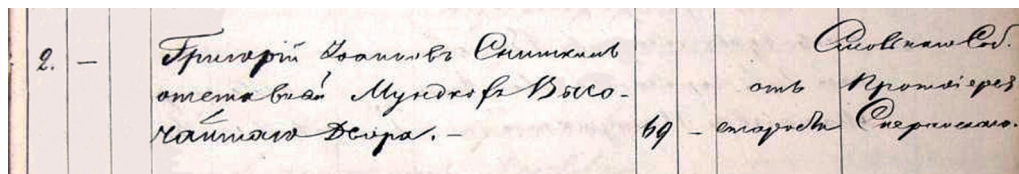 2. — Григорій Іоанновъ Сниткинъ
отставной Мундкохъ Высо-
чайшаго Двора. —
69 — отъ
старости
Смольнаго Соб.
Протоіерея
Сперанскаго.